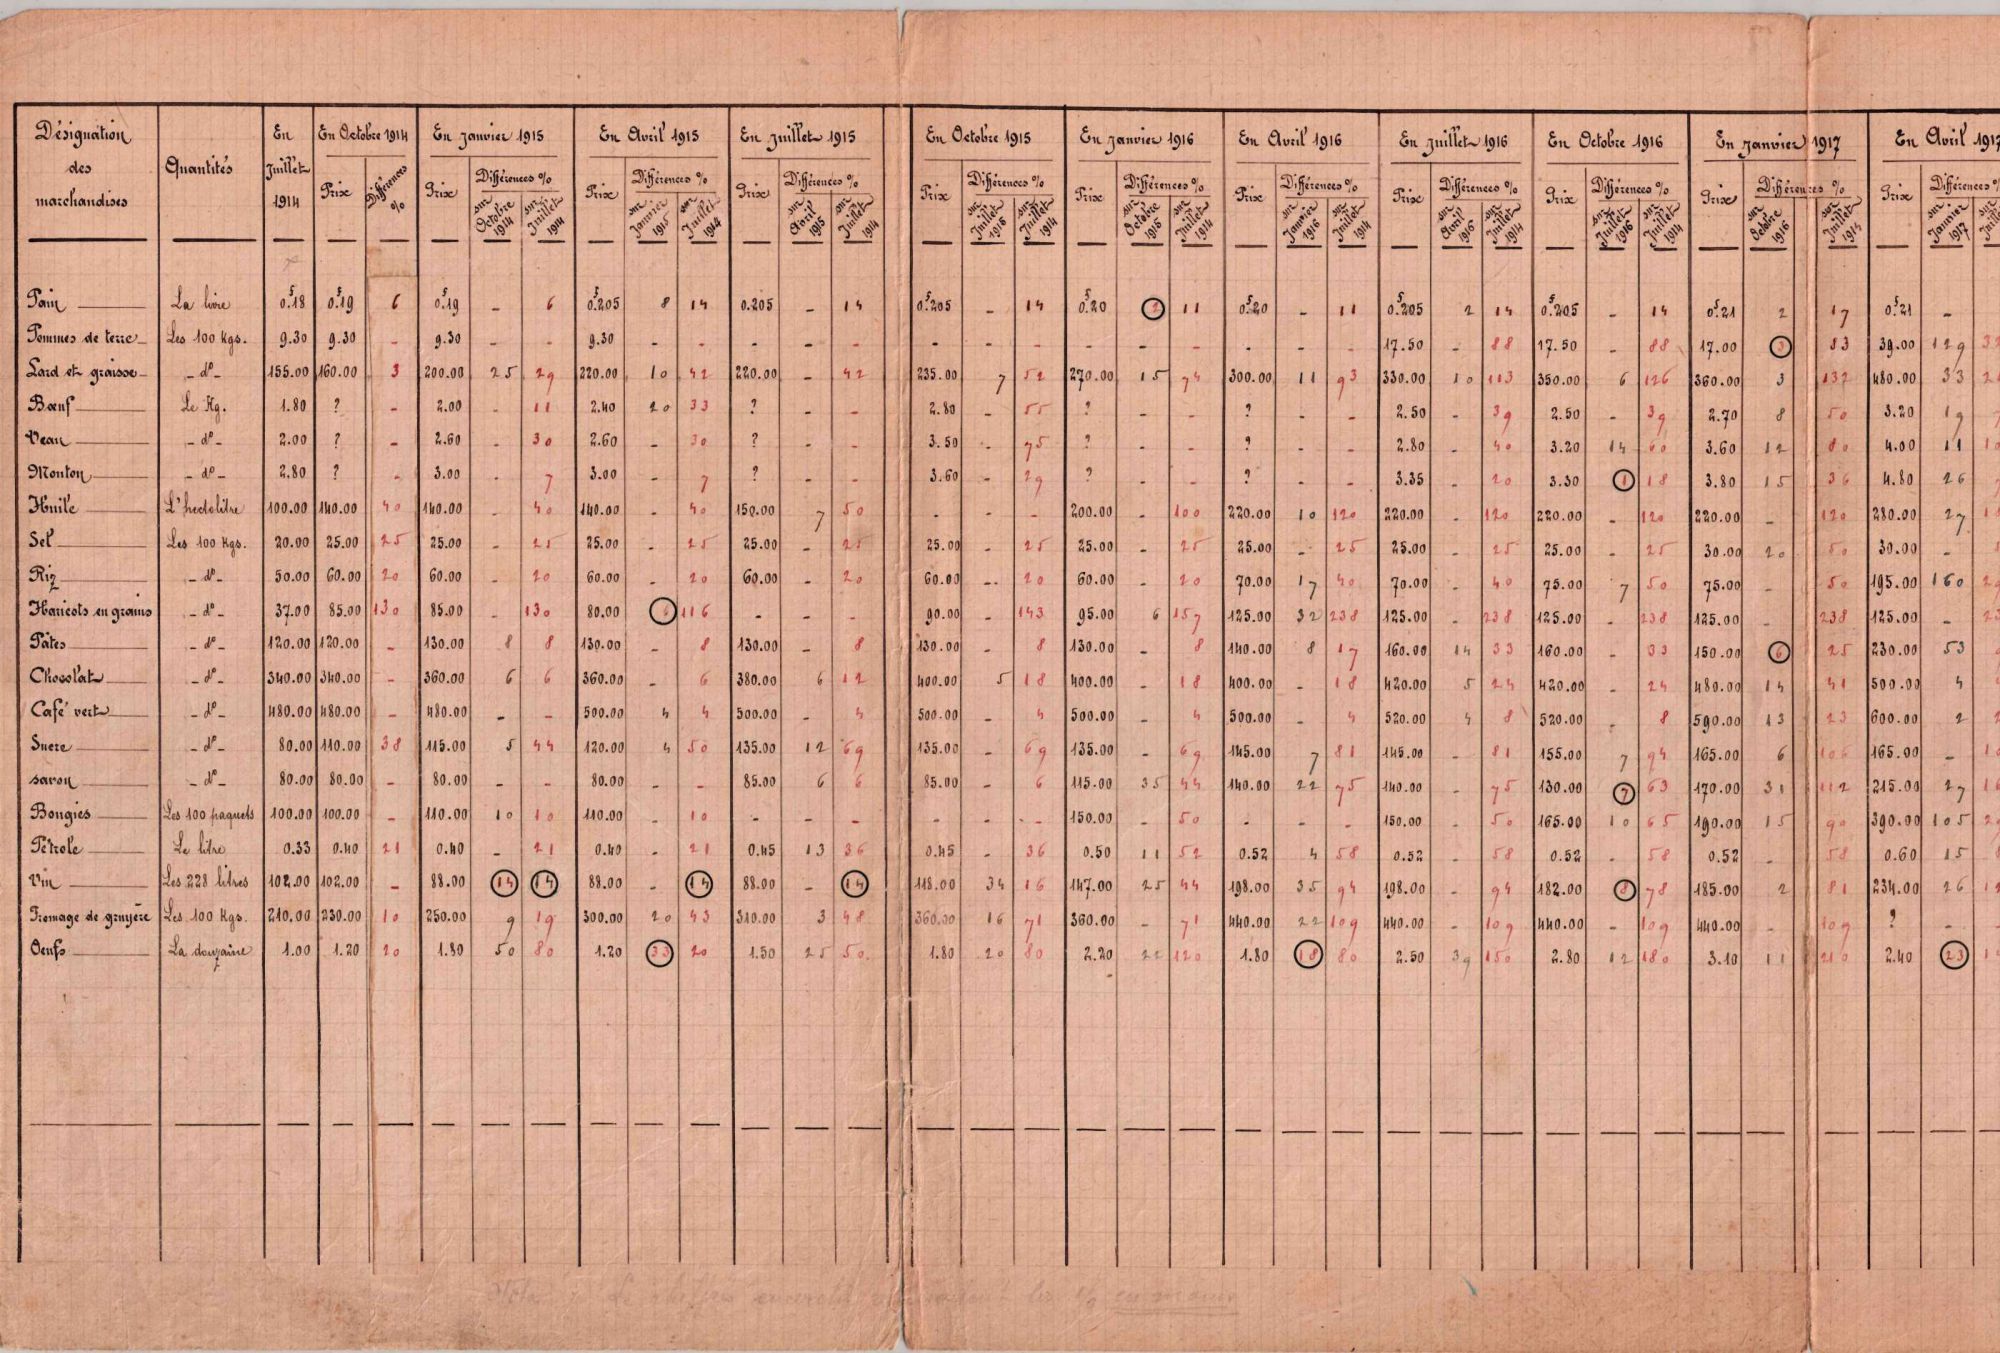 Désignation des marchandises | Quantités | En Juillet 1914 | En Octobre 1914 | En Janvier 1915 | En Avril 1915 | En Juillet 1915 | En Octobre 1915 | En Janvier 1916 | En Avril 1916 | En Juillet 1916 | En Octobre 1916 | En Janvier 1917 | En Avril 1917
Prix | Différences % | Prix | Différences % | Prix | Différences % | Prix | Différences % | Prix | Différences % | Prix | Différences % | Prix | Différences % | Prix | Différences % | Prix | Différences % | Prix | Différences % | Prix | Différences %
sur Octobre 1914 | sur Juillet 1914 | sur Janvier 1915 | sur Juillet 1914 | sur Avril 1915 | sur Juillet 1914 | sur Juillet 1915 | sur Juillet 1914 | sur Octobre 1915 | sur Juillet 1914 | sur Janvier 1916 | sur Juillet 1914 | sur Avril 1916 | sur Juillet 1914 | sur Juillet 1916 | sur Juillet 1914 | sur Octobre 1916 | sur Juillet 1914 | sur Janvier 1917
Pain | La livre | 0.18 | 0.19 | 6 | 0.19 | - | 6 | 0.205 | 8 | 14 | 0.205 | - | 14 | 0.205 | - | 14 | 0.20 | 2 | 11 | 0.20 | - | 11 | 0.205 | 2 | 14 | 0.205 | - | 14 | 0.21 | 2 | 17 | 0.21 | -
Pommes de terre | Les 100 Kgs. | 9.30 | 9.30 | - | 9.30 | - | - | 9.30 | - | - | - | - | - | - | - | - | - | - | - | - | - | - | 17.50 | - | 88 | 17.50 | - | 88 | 17.00 | 3 | 83 | 39.00 | 129
Lard et graisse | - d° - | 155.00 | 160.00 | 3 | 200.00 | 25 | 29 | 220.00 | 10 | 42 | 220.00 | - | 42 | 235.00 | 7 | 52 | 270.00 | 15 | 74 | 300.00 | 11 | 93 | 330.00 | 10 | 113 | 350.00 | 6 | 126 | 360.00 | 3 | 132 | 480.00 | 33
Bœuf | Le Kg. | 1.80 | ? | - | 2.00 | - | 11 | 2.40 | 20 | 33 | ? | - | - | 2.80 | - | 55 | ? | - | - | ? | - | - | 2.50 | - | 39 | 2.50 | - | 39 | 2.70 | 8 | 50 | 3.20 | 19
Veau | - d° - | 2.00 | ? | - | 2.60 | - | 30 | 2.60 | - | 30 | ? | - | - | 3.50 | - | 75 | ? | - | - | ? | - | - | 2.80 | - | 40 | 3.20 | 14 | 60 | 3.60 | 12 | 80 | 4.00 | 11
Mouton | - d° - | 2.80 | ? | - | 3.00 | - | 7 | 3.00 | - | 7 | ? | - | - | 3.60 | - | 29 | ? | - | - | ? | - | - | 3.35 | - | 20 | 3.30 | 1 | 18 | 3.80 | 15 | 36 | 4.80 | 26
Huile | L'hectolitre | 100.00 | 140.00 | 40 | 140.00 | - | 40 | 140.00 | - | 40 | 150.00 | 7 | 50 | - | - | - | 200.00 | - | 100 | 220.00 | 10 | 120 | 220.00 | - | 120 | 220.00 | - | 120 | 220.00 | - | 120 | 280.00 | 27
Sel | Les 100 Kgs. | 20.00 | 25.00 | 25 | 25.00 | - | 25 | 25.00 | - | 25 | 25.00 | - | 25 | 25.00 | - | 25 | 25.00 | - | 25 | 25.00 | - | 25 | 25.00 | - | 25 | 25.00 | - | 25 | 30.00 | 20 | 50 | 30.00 | -
Riz | - d° - | 50.00 | 60.00 | 20 | 60.00 | - | 20 | 60.00 | - | 20 | 60.00 | - | 20 | 60.00 | - | 20 | 60.00 | - | 20 | 70.00 | 17 | 40 | 70.00 | - | 40 | 75.00 | 7 | 50 | 75.00 | - | 50 | 195.00 | 160
Haricots en grains | - d° - | 37.00 | 85.00 | 130 | 85.00 | - | 130 | 80.00 | 6 | 116 | - | - | - | 90.00 | - | 143 | 95.00 | 6 | 157 | 125.00 | 32 | 238 | 125.00 | - | 238 | 125.00 | - | 238 | 125.00 | - | 238 | 125.00 | -
Pâtes | - d° - | 120.00 | 120.00 | - | 130.00 | 8 | 8 | 130.00 | - | 8 | 130.00 | - | 8 | 130.00 | - | 8 | 130.00 | - | 8 | 140.00 | 8 | 17 | 160.00 | 14 | 33 | 160.00 | - | 33 | 150.00 | 6 | 25 | 230.00 | 53
Chocolat | - d° - | 340.00 | 340.00 | - | 360.00 | 6 | 6 | 360.00 | - | 6 | 380.00 | 6 | 12 | 400.00 | 5 | 18 | 400.00 | - | 18 | 400.00 | - | 18 | 420.00 | 5 | 24 | 420.00 | - | 24 | 480.00 | 14 | 41 | 500.00 | 4
Café vert | - d° - | 480.00 | 480.00 | - | 480.00 | - | - | 500.00 | 4 | 4 | 500.00 | - | 4 | 500.00 | - | 4 | 500.00 | - | 4 | 500.00 | - | 4 | 520.00 | 4 | 8 | 520.00 | - | 8 | 590.00 | 13 | 23 | 600.00 | 2
Sucre | - d° - | 80.00 | 110.00 | 38 | 115.00 | 5 | 44 | 120.00 | 4 | 50 | 135.00 | 12 | 69 | 135.00 | - | 69 | 135.00 | - | 69 | 145.00 | 7 | 81 | 145.00 | - | 81 | 155.00 | 7 | 94 | 165.00 | 6 | 106 | 165.00 | -
Savon | - d° - | 80.00 | 80.00 | - | 80.00 | - | - | 80.00 | - | - | 85.00 | 6 | 6 | 85.00 | - | 6 | 115.00 | 35 | 44 | 140.00 | 22 | 75 | 140.00 | - | 75 | 130.00 | 7 | 63 | 170.00 | 31 | 112 | 215.00 | 27
Bougies | Les 100 paquets | 100.00 | 100.00 | - | 110.00 | 10 | 10 | 110.00 | - | 10 | - | - | - | - | - | - | 150.00 | - | 50 | - | - | - | 150.00 | - | 50 | 165.00 | 10 | 65 | 190.00 | 15 | 90 | 390.00 | 105
Pétrole | Le litre | 0.33 | 0.40 | 21 | 0.40 | - | 21 | 0.40 | - | 21 | 0.45 | 13 | 36 | 0.45 | - | 36 | 0.50 | 11 | 52 | 0.52 | 4 | 58 | 0.52 | - | 58 | 0.52 | - | 58 | 0.52 | - | 58 | 0.60 | 15
Vin | Les 228 litres | 102.00 | 102.00 | - | 88.00 | 14 | 14 | 88.00 | - | 14 | 88.00 | - | 14 | 118.00 | 34 | 16 | 147.00 | 25 | 44 | 198.00 | 35 | 94 | 198.00 | - | 94 | 182.00 | 8 | 78 | 185.00 | 2 | 81 | 234.00 | 26
Fromage de gruyère | Les 100 Kgs. | 210.00 | 230.00 | 10 | 250.00 | 9 | 19 | 300.00 | 20 | 43 | 310.00 | 3 | 48 | 360.00 | 16 | 71 | 360.00 | - | 71 | 440.00 | 22 | 109 | 440.00 | - | 109 | 440.00 | - | 109 | 440.00 | - | 109 | ? | -
Oeufs | La douzaine | 1.00 | 1.20 | 20 | 1.80 | 50 | 80 | 1.20 | 33 | 20 | 1.50 | 25 | 50 | 1.80 | 20 | 80 | 2.20 | 22 | 120 | 1.80 | 18 | 80 | 2.50 | 39 | 150 | 2.80 | 12 | 180 | 3.10 | 11 | 210 | 2.40 | 23